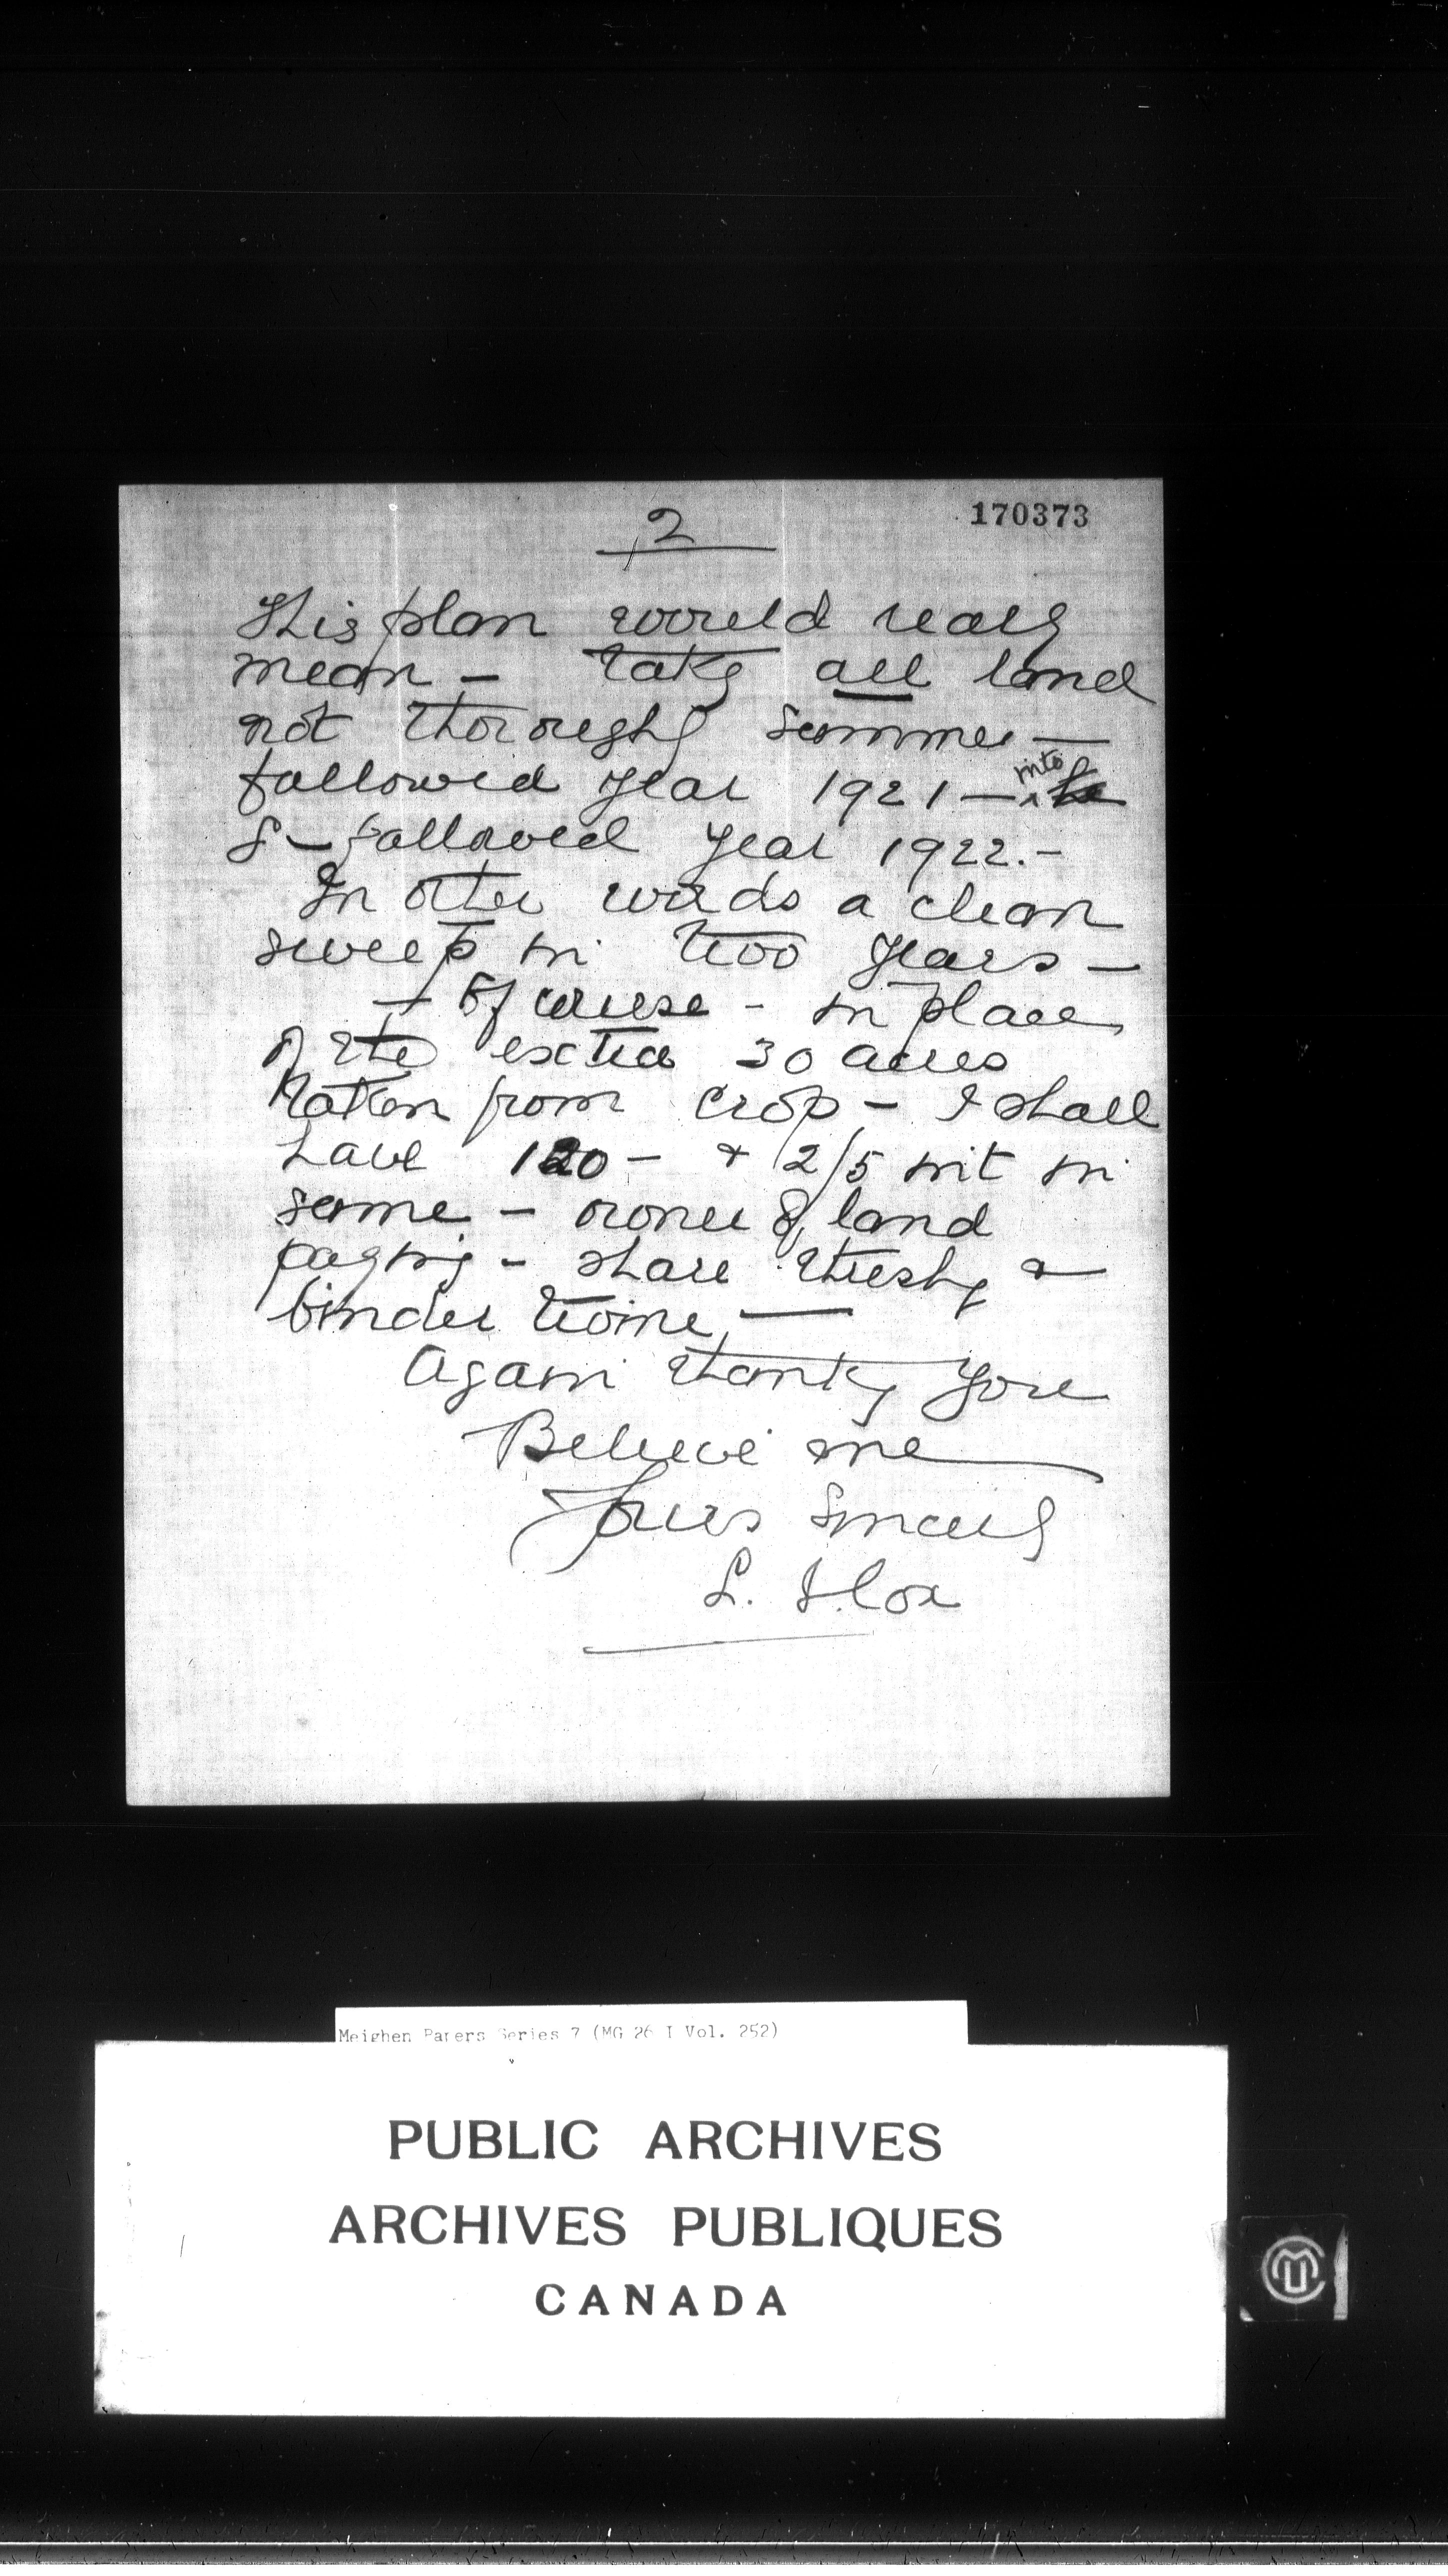 2
170373
This plan would realy
mean - take all land
not thoroughly summer -
fallowed year 1921 - into
S - fallowed year 1922. -
In other words a clean
sweep in two years -
- Of course - in place
of the extra 30 acres
taken from crop - I shall
have 120 - + 2/5 int in
same - owner of land
paying - share threshg &
binder twine, -
Again thankg you
Believe me
Yours Sincerely
L.
Meighen Papers Series 7 (MG 26 I Vol. 252)
PUBLIC ARCHIVES
ARCHIVES PUBLIQUES
CANADA